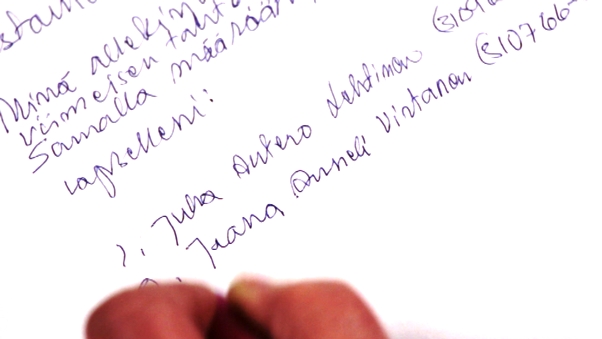 Minä allekir
viimeisen tahto
Samalla määrään,
lapselleni:
1. Juha Antero Lehtinen (3101
2. Jaana Anneli Virtanen (310766-